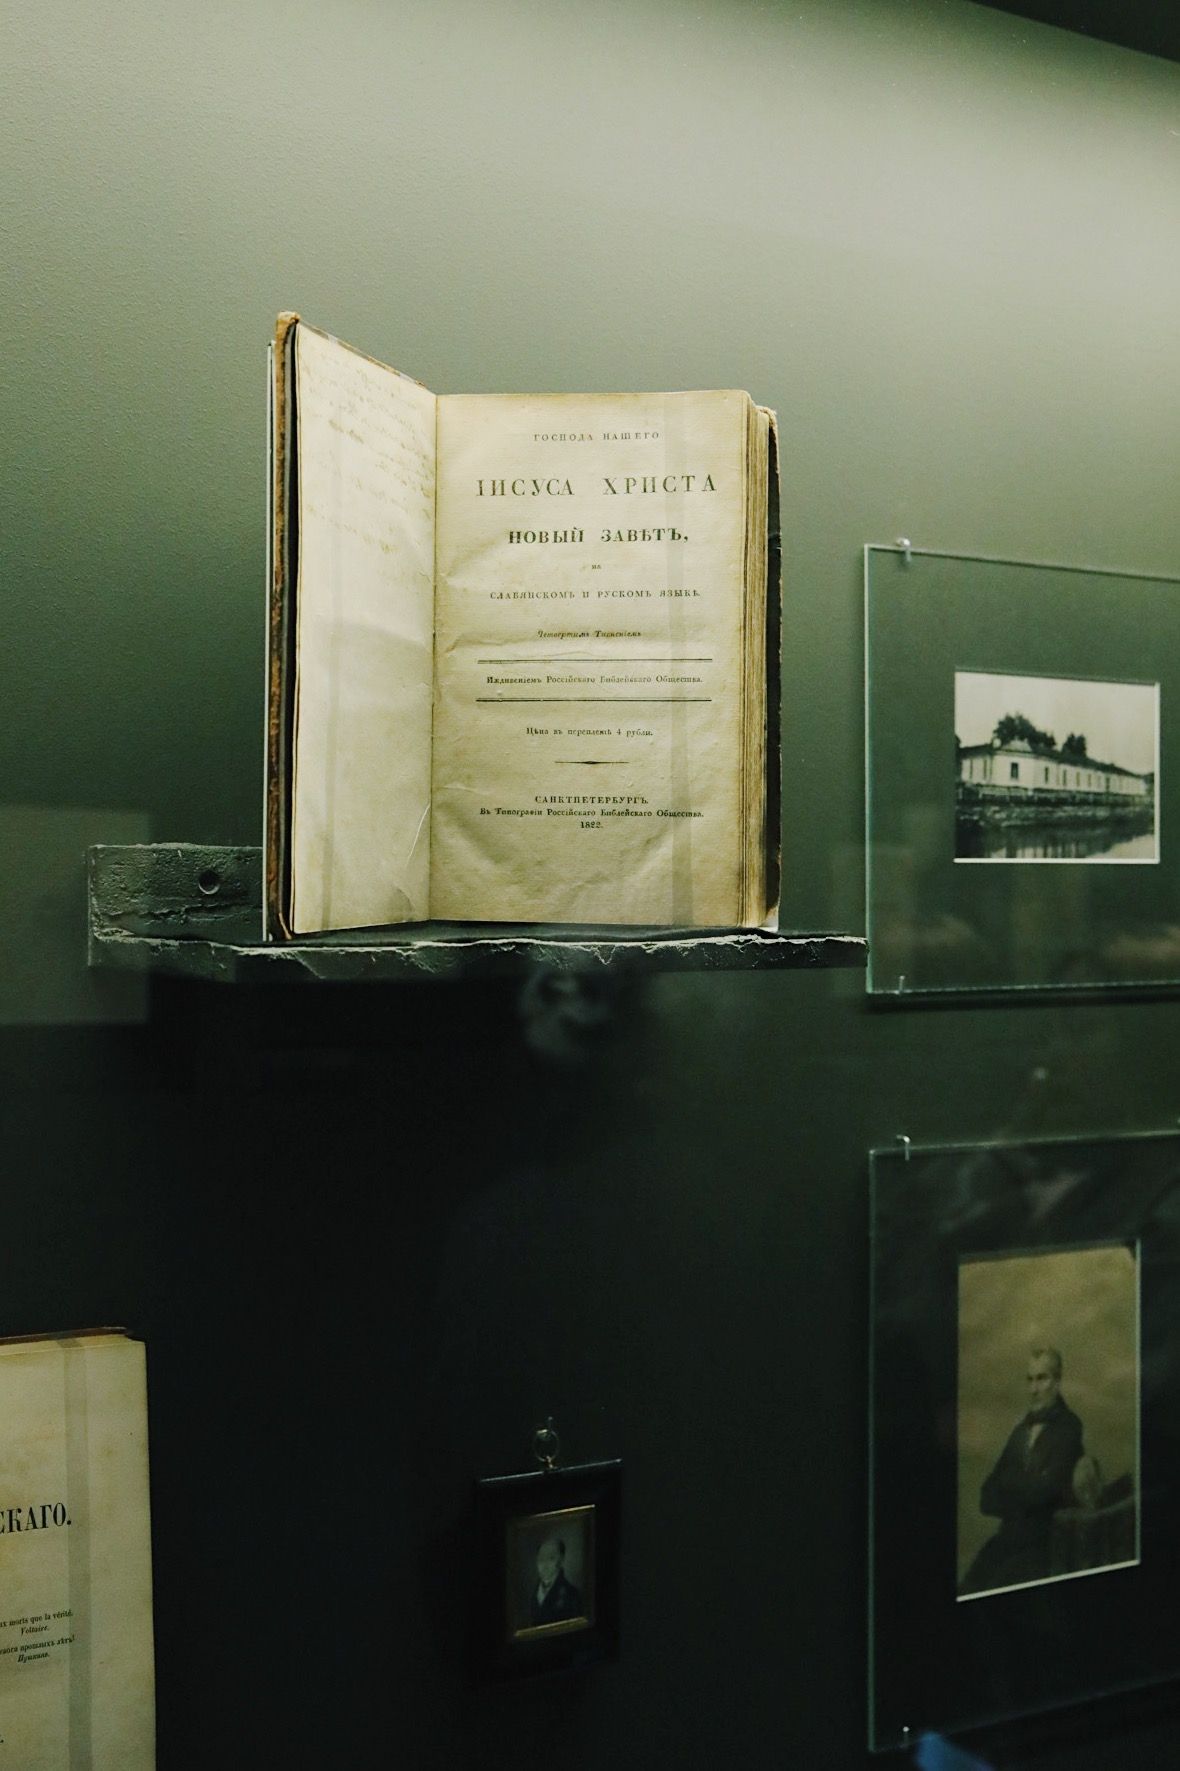 ГОСПОДА НАШЕГО
ІИСУСА ХРИСТА
НОВЫЙ ЗАВѢТЪ,
НА
СЛАВЯНСКОМЪ И РУСКОМЪ ЯЗЫКѢ.
Четвертымъ Тисненіемъ
Иждивеніемъ Россійскаго Библейскаго Общества.
Цѣна въ переплетѣ 4 рубли.
САНКТПЕТЕРБУРГЪ.
Въ Типографіи Россійскаго Библейскаго Общества.
1822.
СКАГО.
morts que la vérité.
Voltaire.
прошлыхъ лѣтъ!
Пушкинъ.